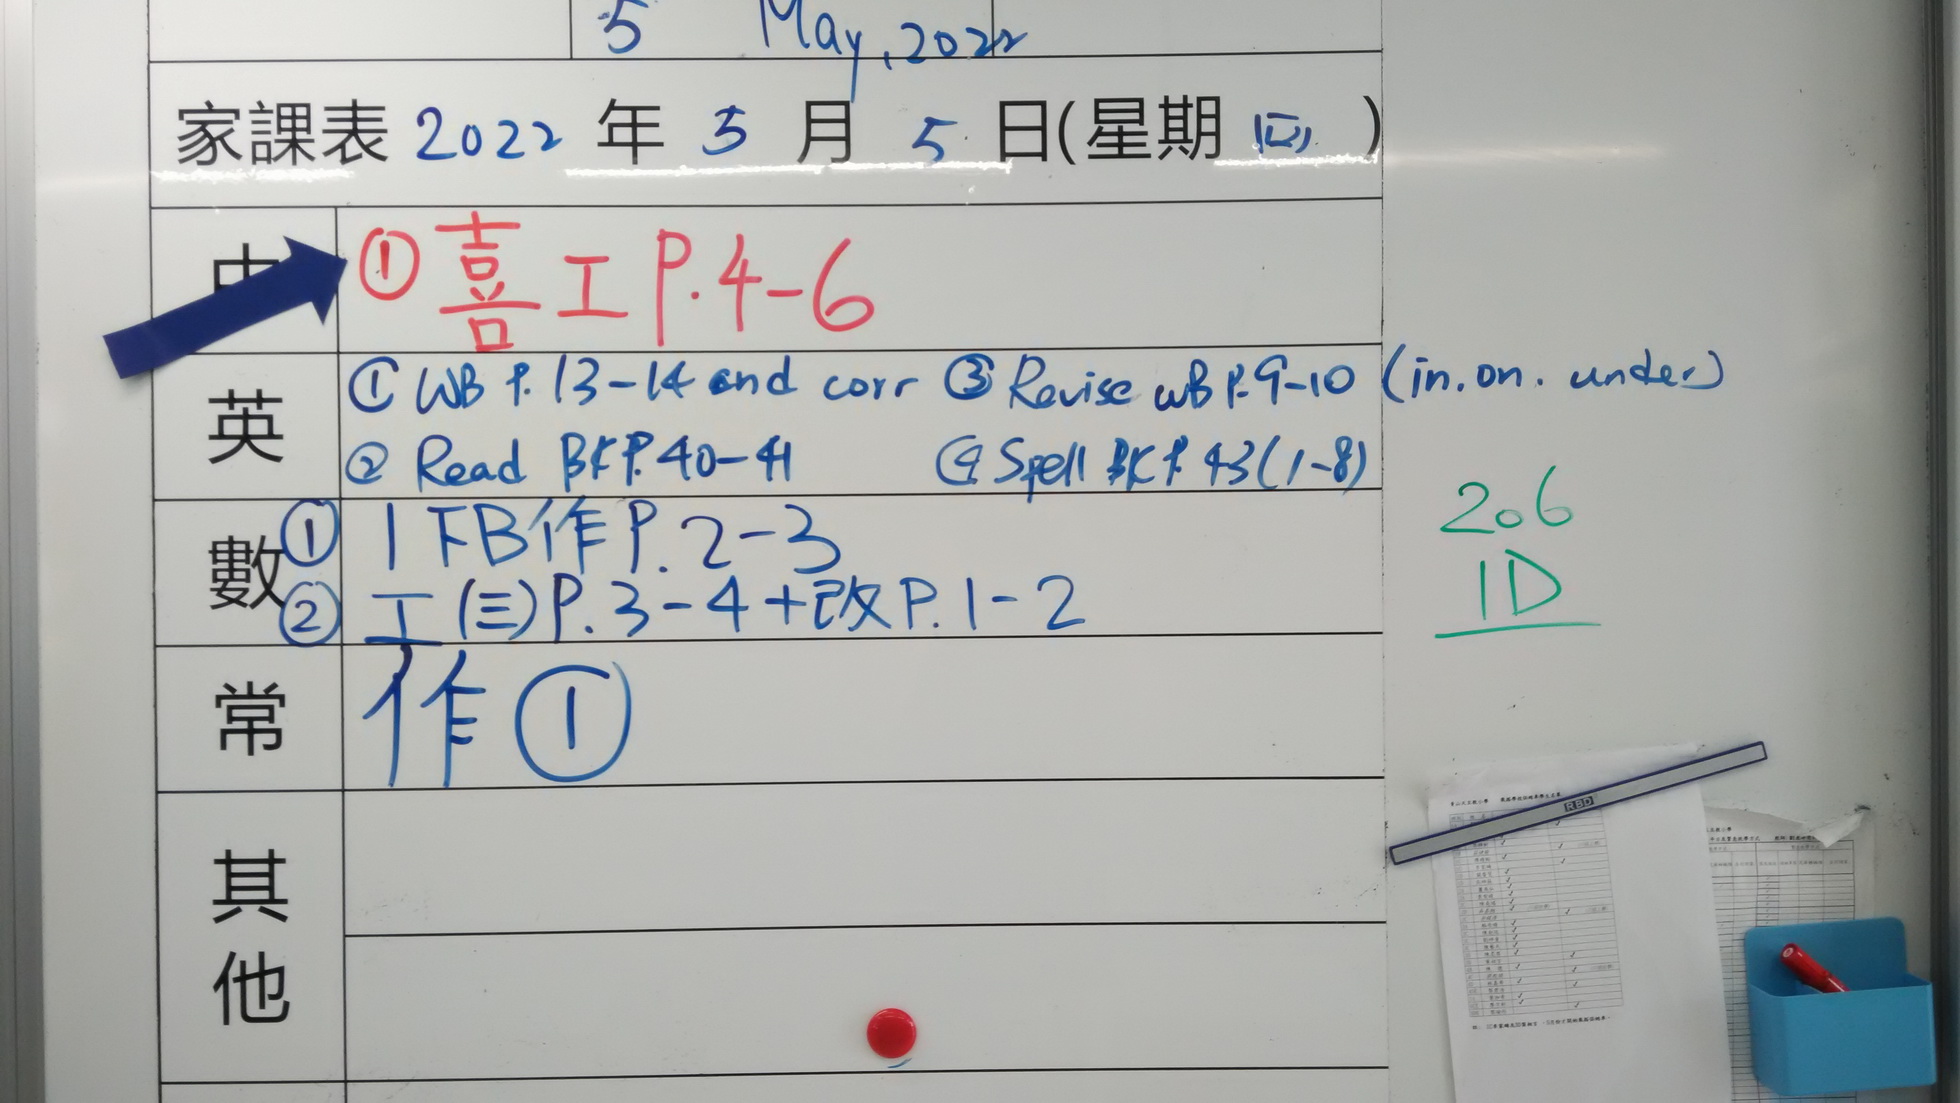 5 May, 2022
家課表 2022 年 5 月 5 日(星期 四 )
中 ① 喜 工 P.4-6
英 ① WB P.13-14 and corr ③ Revise WB P.9-10 (in. on. under)
② Read BK P.40-41 ④ Spell BK P.43 (1-8)
數 ① 1下B作 P.2-3
② 工(三) P.3-4+改 P.1-2
常 作①
其他
206
1D
RBD